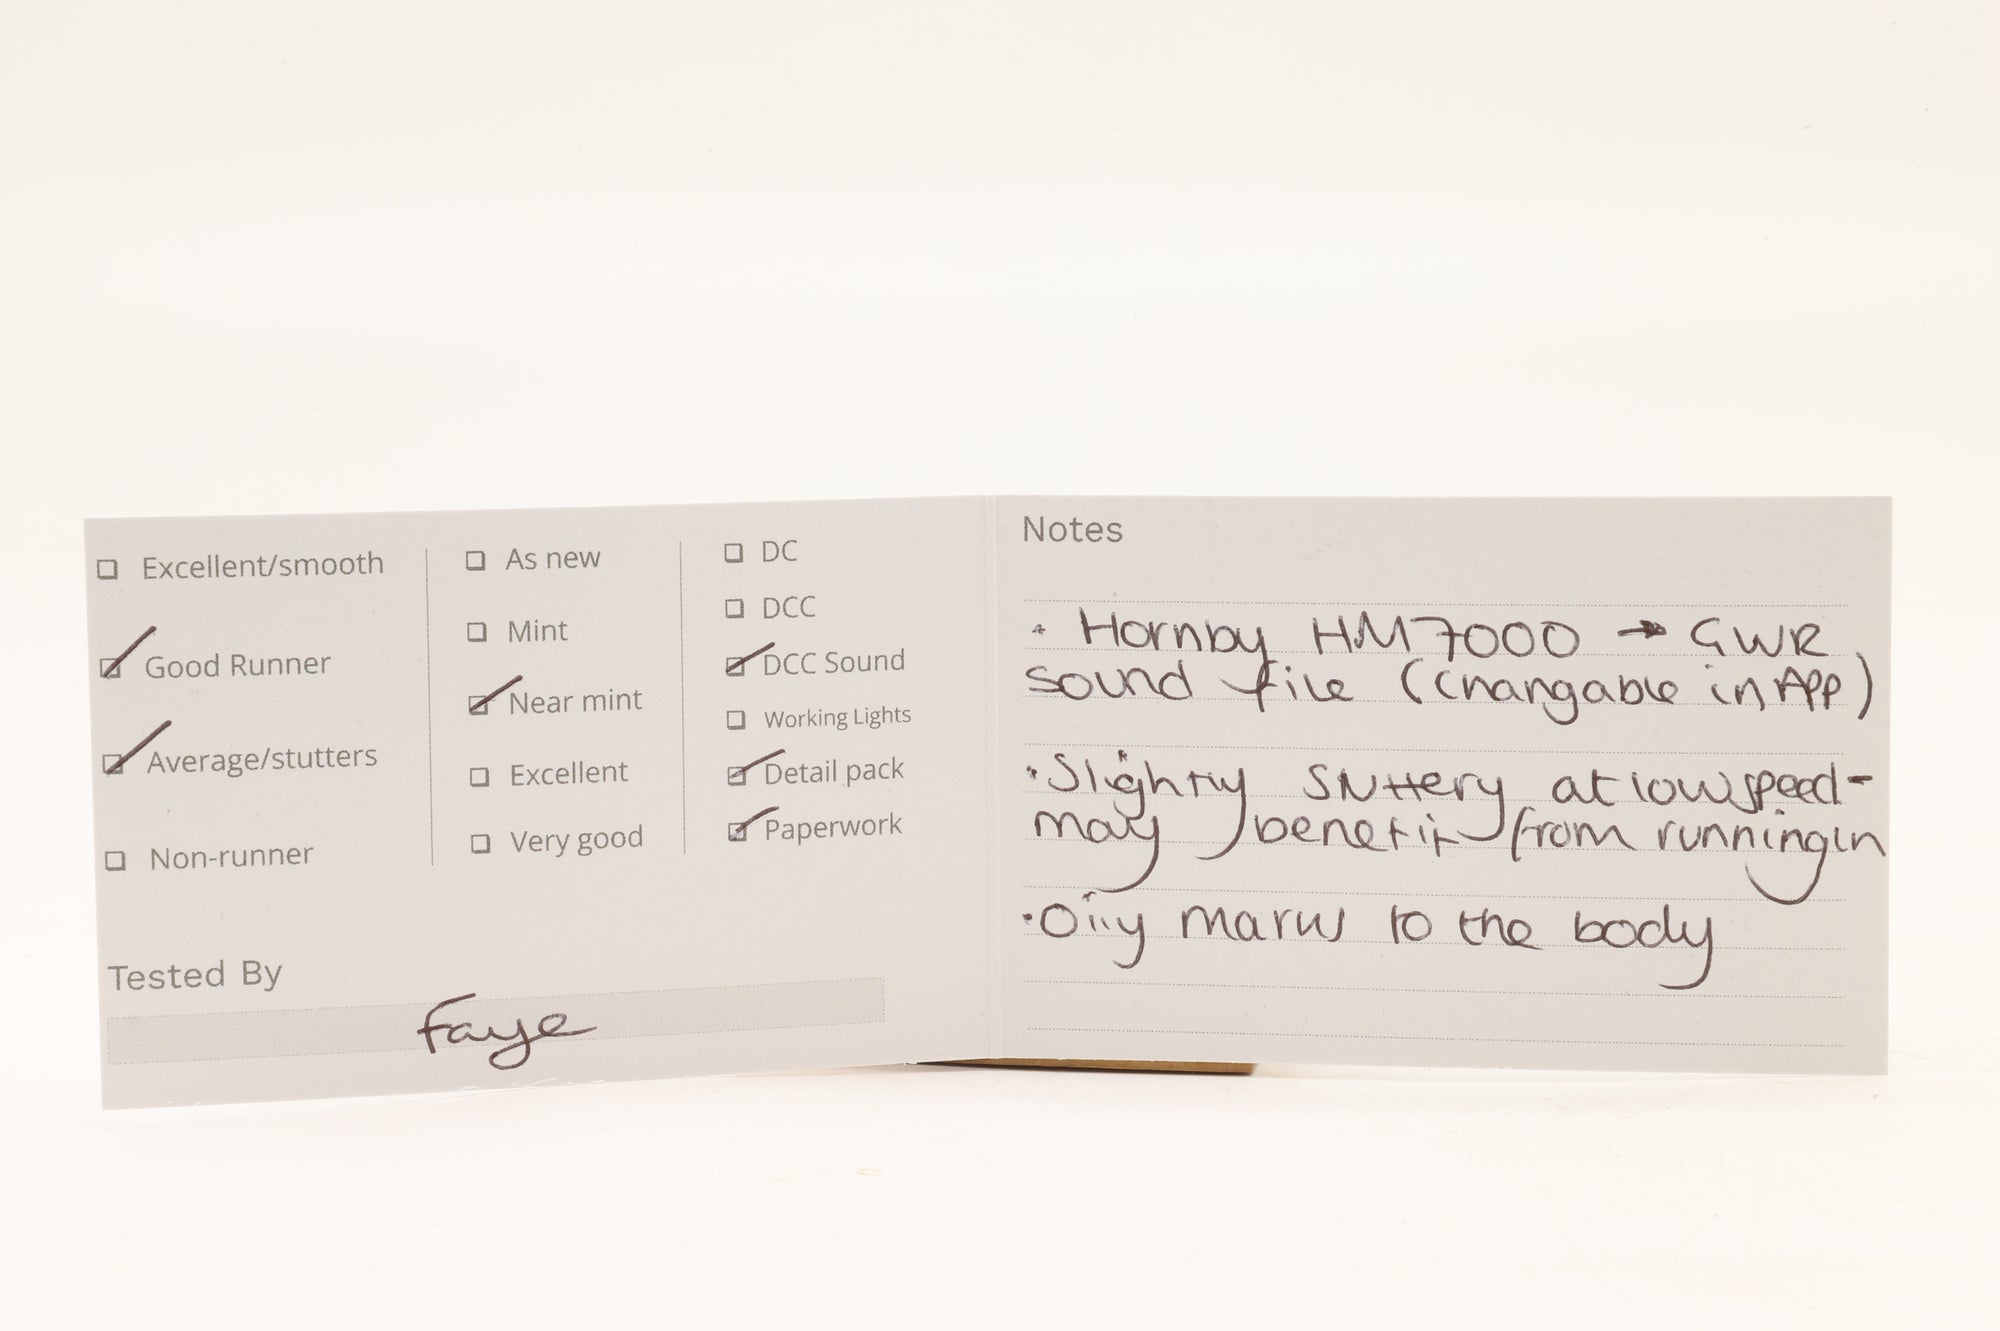 Excellent/smooth
Good Runner
Average/stutters
Non-runner
As new
Mint
Near mint
Excellent
Very good
DC
DCC
DCC Sound
Working Lights
Detail pack
Paperwork
Tested By
Faye
Notes
· Hornby HM7000 → GWR
sound file (changable in App)
· Slightly stuttery at low speed -
may benefit from running in
· Oily marks to the body